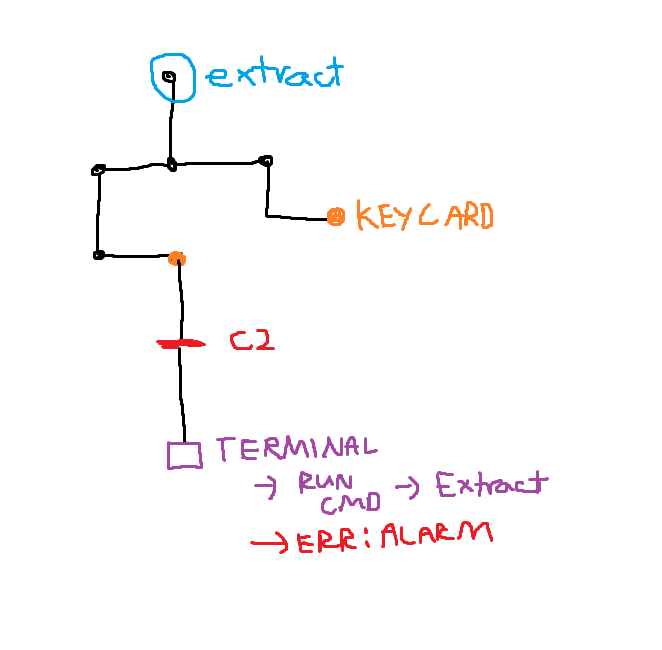 extract
KEYCARD
C2
TERMINAL
→ RUN CMD → Extract
→ ERR: ALARM